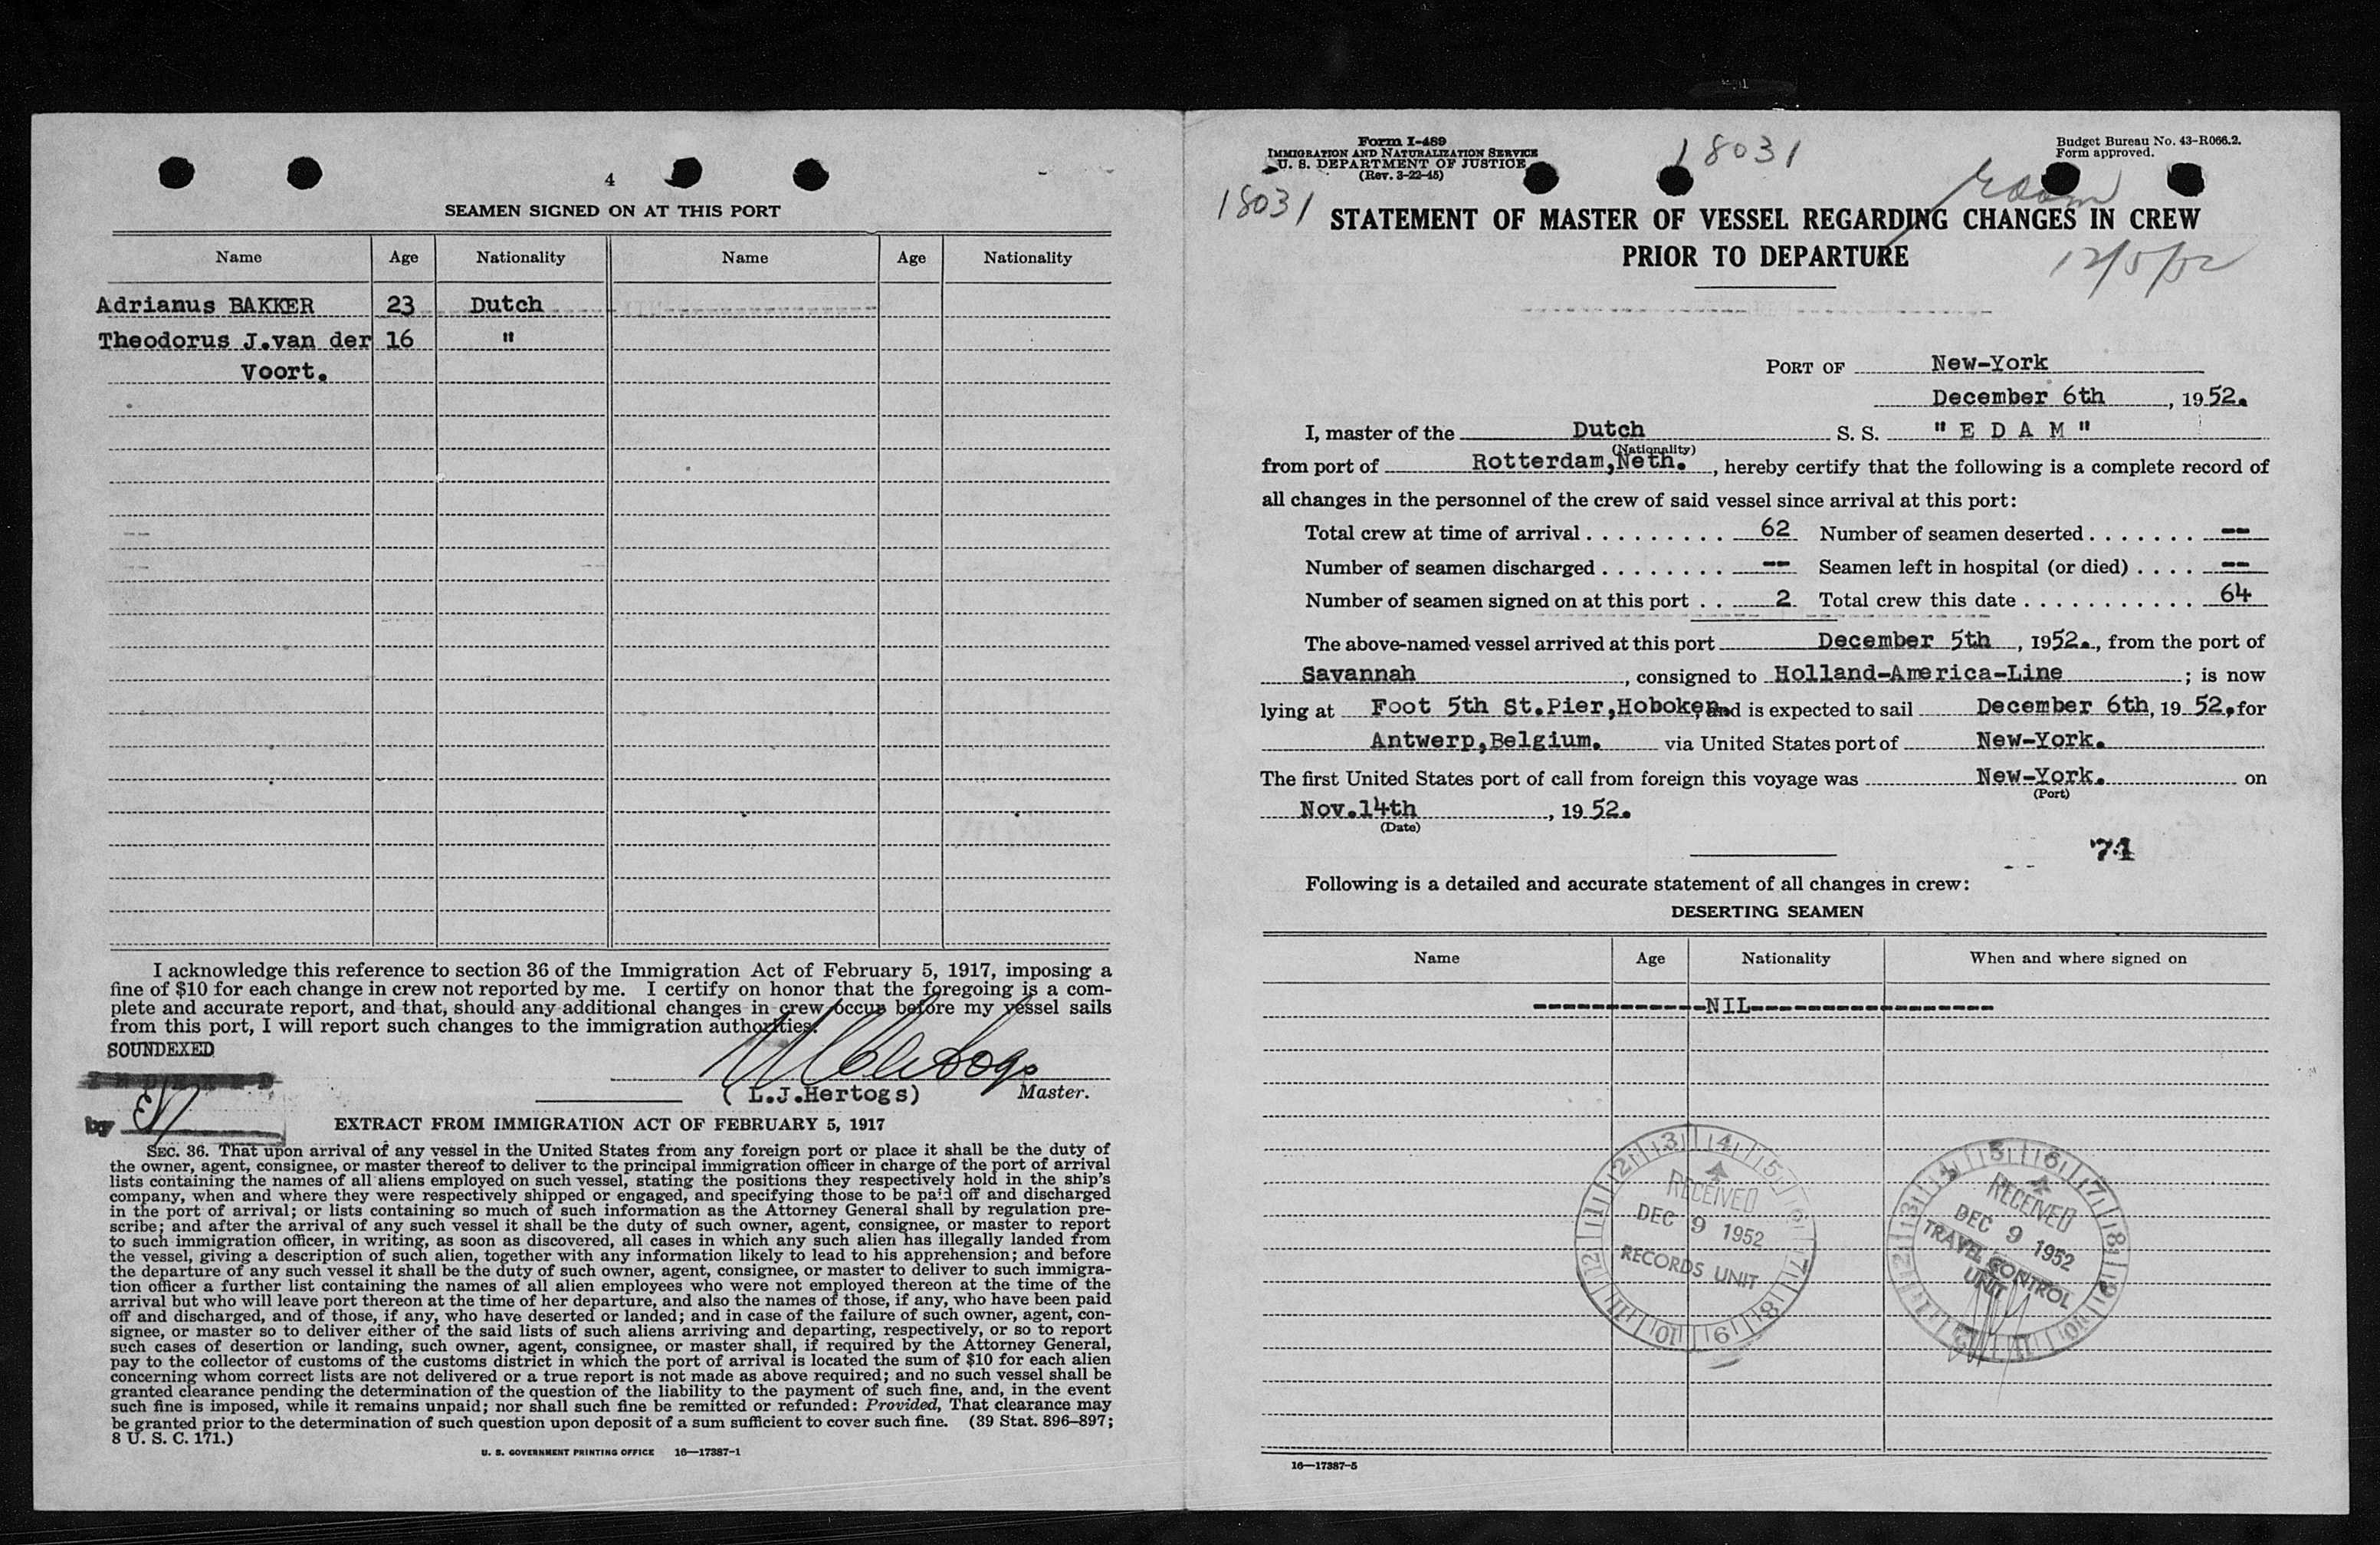 4
SEAMEN SIGNED ON AT THIS PORT
Name Age Nationality Name Age Nationality
Adrianus BAKKER 23 Dutch
Theodorus J.van der 16 "
Voort.
I acknowledge this reference to section 36 of the Immigration Act of February 5, 1917, imposing a
fine of $10 for each change in crew not reported by me. I certify on honor that the foregoing is a com-
plete and accurate report, and that, should any additional changes in crew occur before my vessel sails
from this port, I will report such changes to the immigration authorities.
SOUNDEXED
INDEXED
(L.J.Hertogs) Master.
by
EXTRACT FROM IMMIGRATION ACT OF FEBRUARY 5, 1917
SEC. 36. That upon arrival of any vessel in the United States from any foreign port or place it shall be the duty of
the owner, agent, consignee, or master thereof to deliver to the principal immigration officer in charge of the port of arrival
lists containing the names of all aliens employed on such vessel, stating the positions they respectively hold in the ship's
company, when and where they were respectively shipped or engaged, and specifying those to be paid off and discharged
in the port of arrival; or lists containing so much of such information as the Attorney General shall by regulation pre-
scribe; and after the arrival of any such vessel it shall be the duty of such owner, agent, consignee, or master to report
to such immigration officer, in writing, as soon as discovered, all cases in which any such alien has illegally landed from
the vessel, giving a description of such alien, together with any information likely to lead to his apprehension; and before
the departure of any such vessel it shall be the duty of such owner, agent, consignee, or master to deliver to such immigra-
tion officer a further list containing the names of all alien employees who were not employed thereon at the time of the
arrival but who will leave port thereon at the time of her departure, and also the names of those, if any, who have been paid
off and discharged, and of those, if any, who have deserted or landed; and in case of the failure of such owner, agent, con-
signee, or master so to deliver either of the said lists of such aliens arriving and departing, respectively, or so to report
such cases of desertion or landing, such owner, agent, consignee, or master shall, if required by the Attorney General,
pay to the collector of customs of the customs district in which the port of arrival is located the sum of $10 for each alien
concerning whom correct lists are not delivered or a true report is not made as above required; and no such vessel shall be
granted clearance pending the determination of the question of the liability to the payment of such fine, and, in the event
such fine is imposed, while it remains unpaid; nor shall such fine be remitted or refunded: Provided, That clearance may
be granted prior to the determination of such question upon deposit of a sum sufficient to cover such fine. (39 Stat. 896–897;
8 U. S. C. 171.)
U. S. GOVERNMENT PRINTING OFFICE 16—17387-1
Form I-489
IMMIGRATION AND NATURALIZATION SERVICE
U. S. DEPARTMENT OF JUSTICE
(Rev. 3-22-45)
18031
Budget Bureau No. 43-R066.2.
Form approved.
18031
STATEMENT OF MASTER OF VESSEL REGARDING CHANGES IN CREW
PRIOR TO DEPARTURE
12/5/52
PORT OF New-York
December 6th, 1952.
I, master of the Dutch S. S. "E D A M"
(Nationality)
from port of Rotterdam,Neth., hereby certify that the following is a complete record of
all changes in the personnel of the crew of said vessel since arrival at this port:
Total crew at time of arrival . . . . . . . . . 62 Number of seamen deserted . . . . . . . --
Number of seamen discharged . . . . . . . . -- Seamen left in hospital (or died) . . . . --
Number of seamen signed on at this port . . 2 Total crew this date . . . . . . . . . . . 64
The above-named vessel arrived at this port December 5th, 1952., from the port of
Savannah, consigned to Holland-America-Line; is now
lying at Foot 5th St.Pier,Hoboken, and is expected to sail December 6th, 19 52, for
Antwerp,Belgium. via United States port of New-York.
The first United States port of call from foreign this voyage was New-York. on
(Port)
Nov.14th, 19 52.
(Date)
71
Following is a detailed and accurate statement of all changes in crew:
DESERTING SEAMEN
Name Age Nationality When and where signed on
-------------NIL------------------
RECEIVED
DEC 9 1952
RECORDS UNIT
RECEIVED
DEC 9 1952
TRAVEL CONTROL
UNIT
16—17387-5